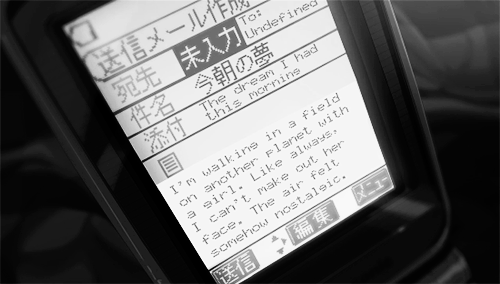 送信メール作成
宛先 未入力 To: Undefined
件名 今朝の夢 The dream I had this morning
添付
I'm walking in a field
on another planet with
a girl. Like always,
I can't make out her
face. The air felt
somehow nostalgic.
送信 編集 メニュー